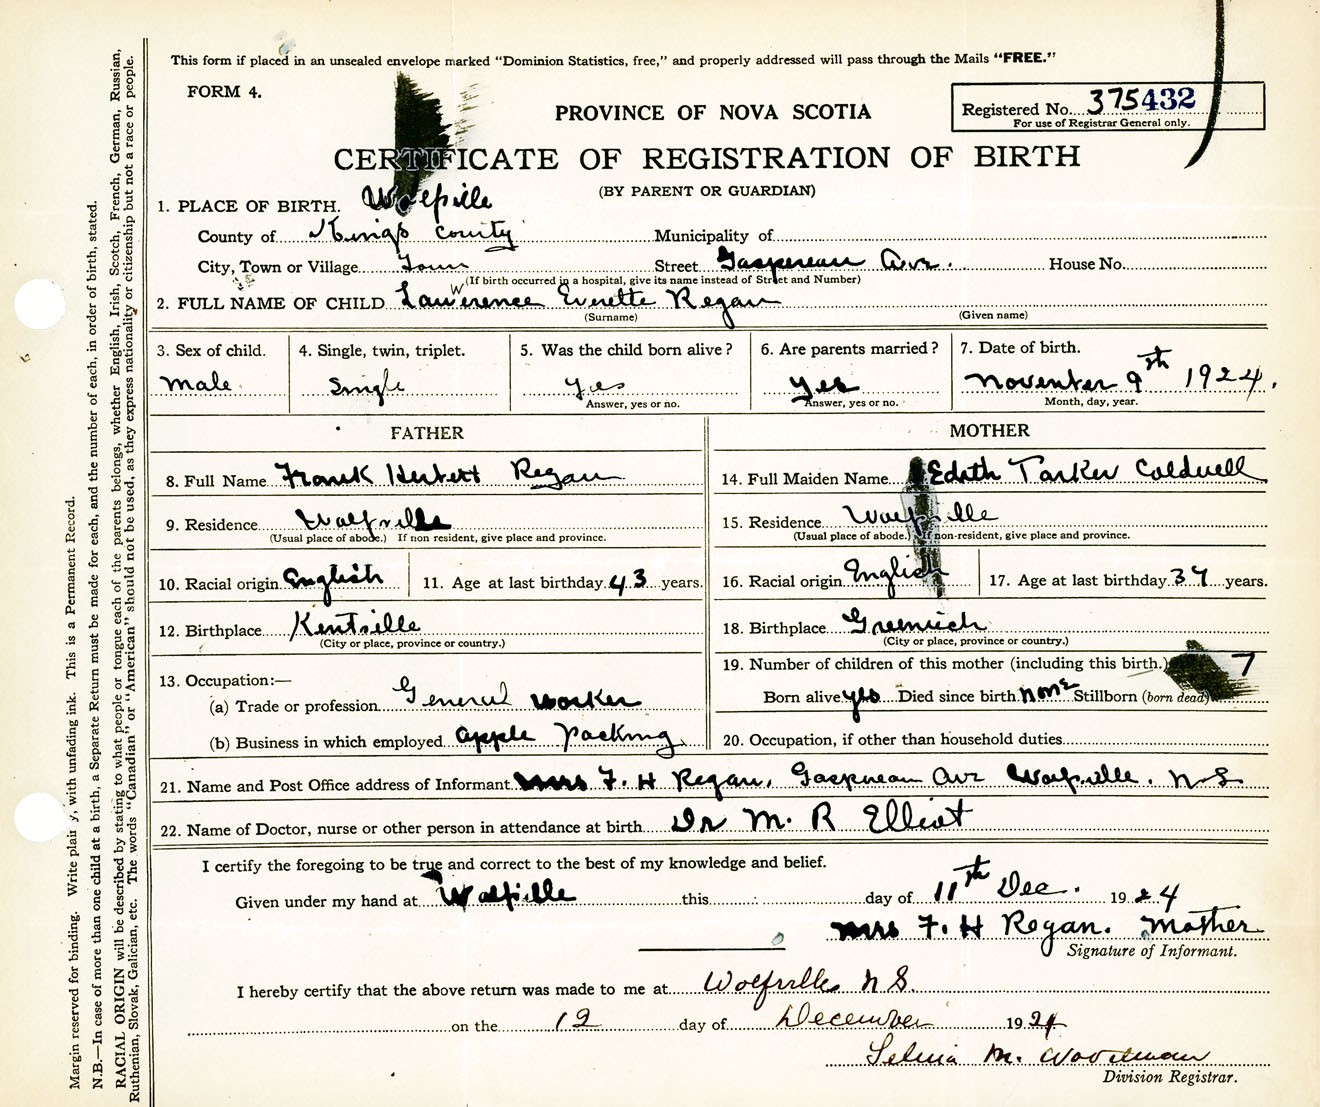 This form if placed in an unsealed envelope marked "Dominion Statistics, free," and properly addressed will pass through the Mails "FREE."
FORM 4.
PROVINCE OF NOVA SCOTIA
Registered No. 375432
For use of Registrar General only.
CERTIFICATE OF REGISTRATION OF BIRTH
(BY PARENT OR GUARDIAN)
1. PLACE OF BIRTH. Wolfville
County of Kings County Municipality of
City, Town or Village Town Street Gaspereau Ave. House No.
(If birth occurred in a hospital, give its name instead of Street and Number)
2. FULL NAME OF CHILD Lawrence Everette Regan
(Surname) (Given name)
3. Sex of child. 4. Single, twin, triplet. 5. Was the child born alive? 6. Are parents married? 7. Date of birth.
Male Single Yes Yes November 9th 1924.
Answer, yes or no. Answer, yes or no. Month, day, year.
FATHER MOTHER
8. Full Name Frank Herbert Regan 14. Full Maiden Name Edith Tarker Coldwell
9. Residence Wolfville 15. Residence Wolfville
(Usual place of abode.) If non resident, give place and province. (Usual place of abode.) If non-resident, give place and province.
10. Racial origin English 11. Age at last birthday 43 years. 16. Racial origin English 17. Age at last birthday 37 years.
12. Birthplace Kentville 18. Birthplace Greenwich
(City or place, province or country.) (City or place, province or country.)
13. Occupation:— 19. Number of children of this mother (including this birth.) 7
(a) Trade or profession General worker Born alive yes Died since birth none Stillborn (born dead)
(b) Business in which employed apple Packing 20. Occupation, if other than household duties
21. Name and Post Office address of Informant Mrs F. H Regan, Gaspereau Ave Wolfville. N.S.
22. Name of Doctor, nurse or other person in attendance at birth Dr M. R Elliot
I certify the foregoing to be true and correct to the best of my knowledge and belief.
Given under my hand at Wolfville this day of 11th Dec. 1924
Mrs F. H Regan. Mother
Signature of Informant.
I hereby certify that the above return was made to me at Wolfville N S.
on the 12 day of December 1924
M.
Division Registrar.
Margin reserved for binding. Write plainly, with unfading ink. This is a Permanent Record.
N.B.—In case of more than one child at a birth, a Separate Return must be made for each, and the number of each, in order of birth, stated.
RACIAL ORIGIN will be described by stating to what people or tongue each of the parents belongs, whether English, Irish, Scotch, French, German, Russian,
Ruthenian, Slovak, Galician, etc. The words "Canadian" or "American" should not be used, as they express nationality or citizenship but not a race or people.